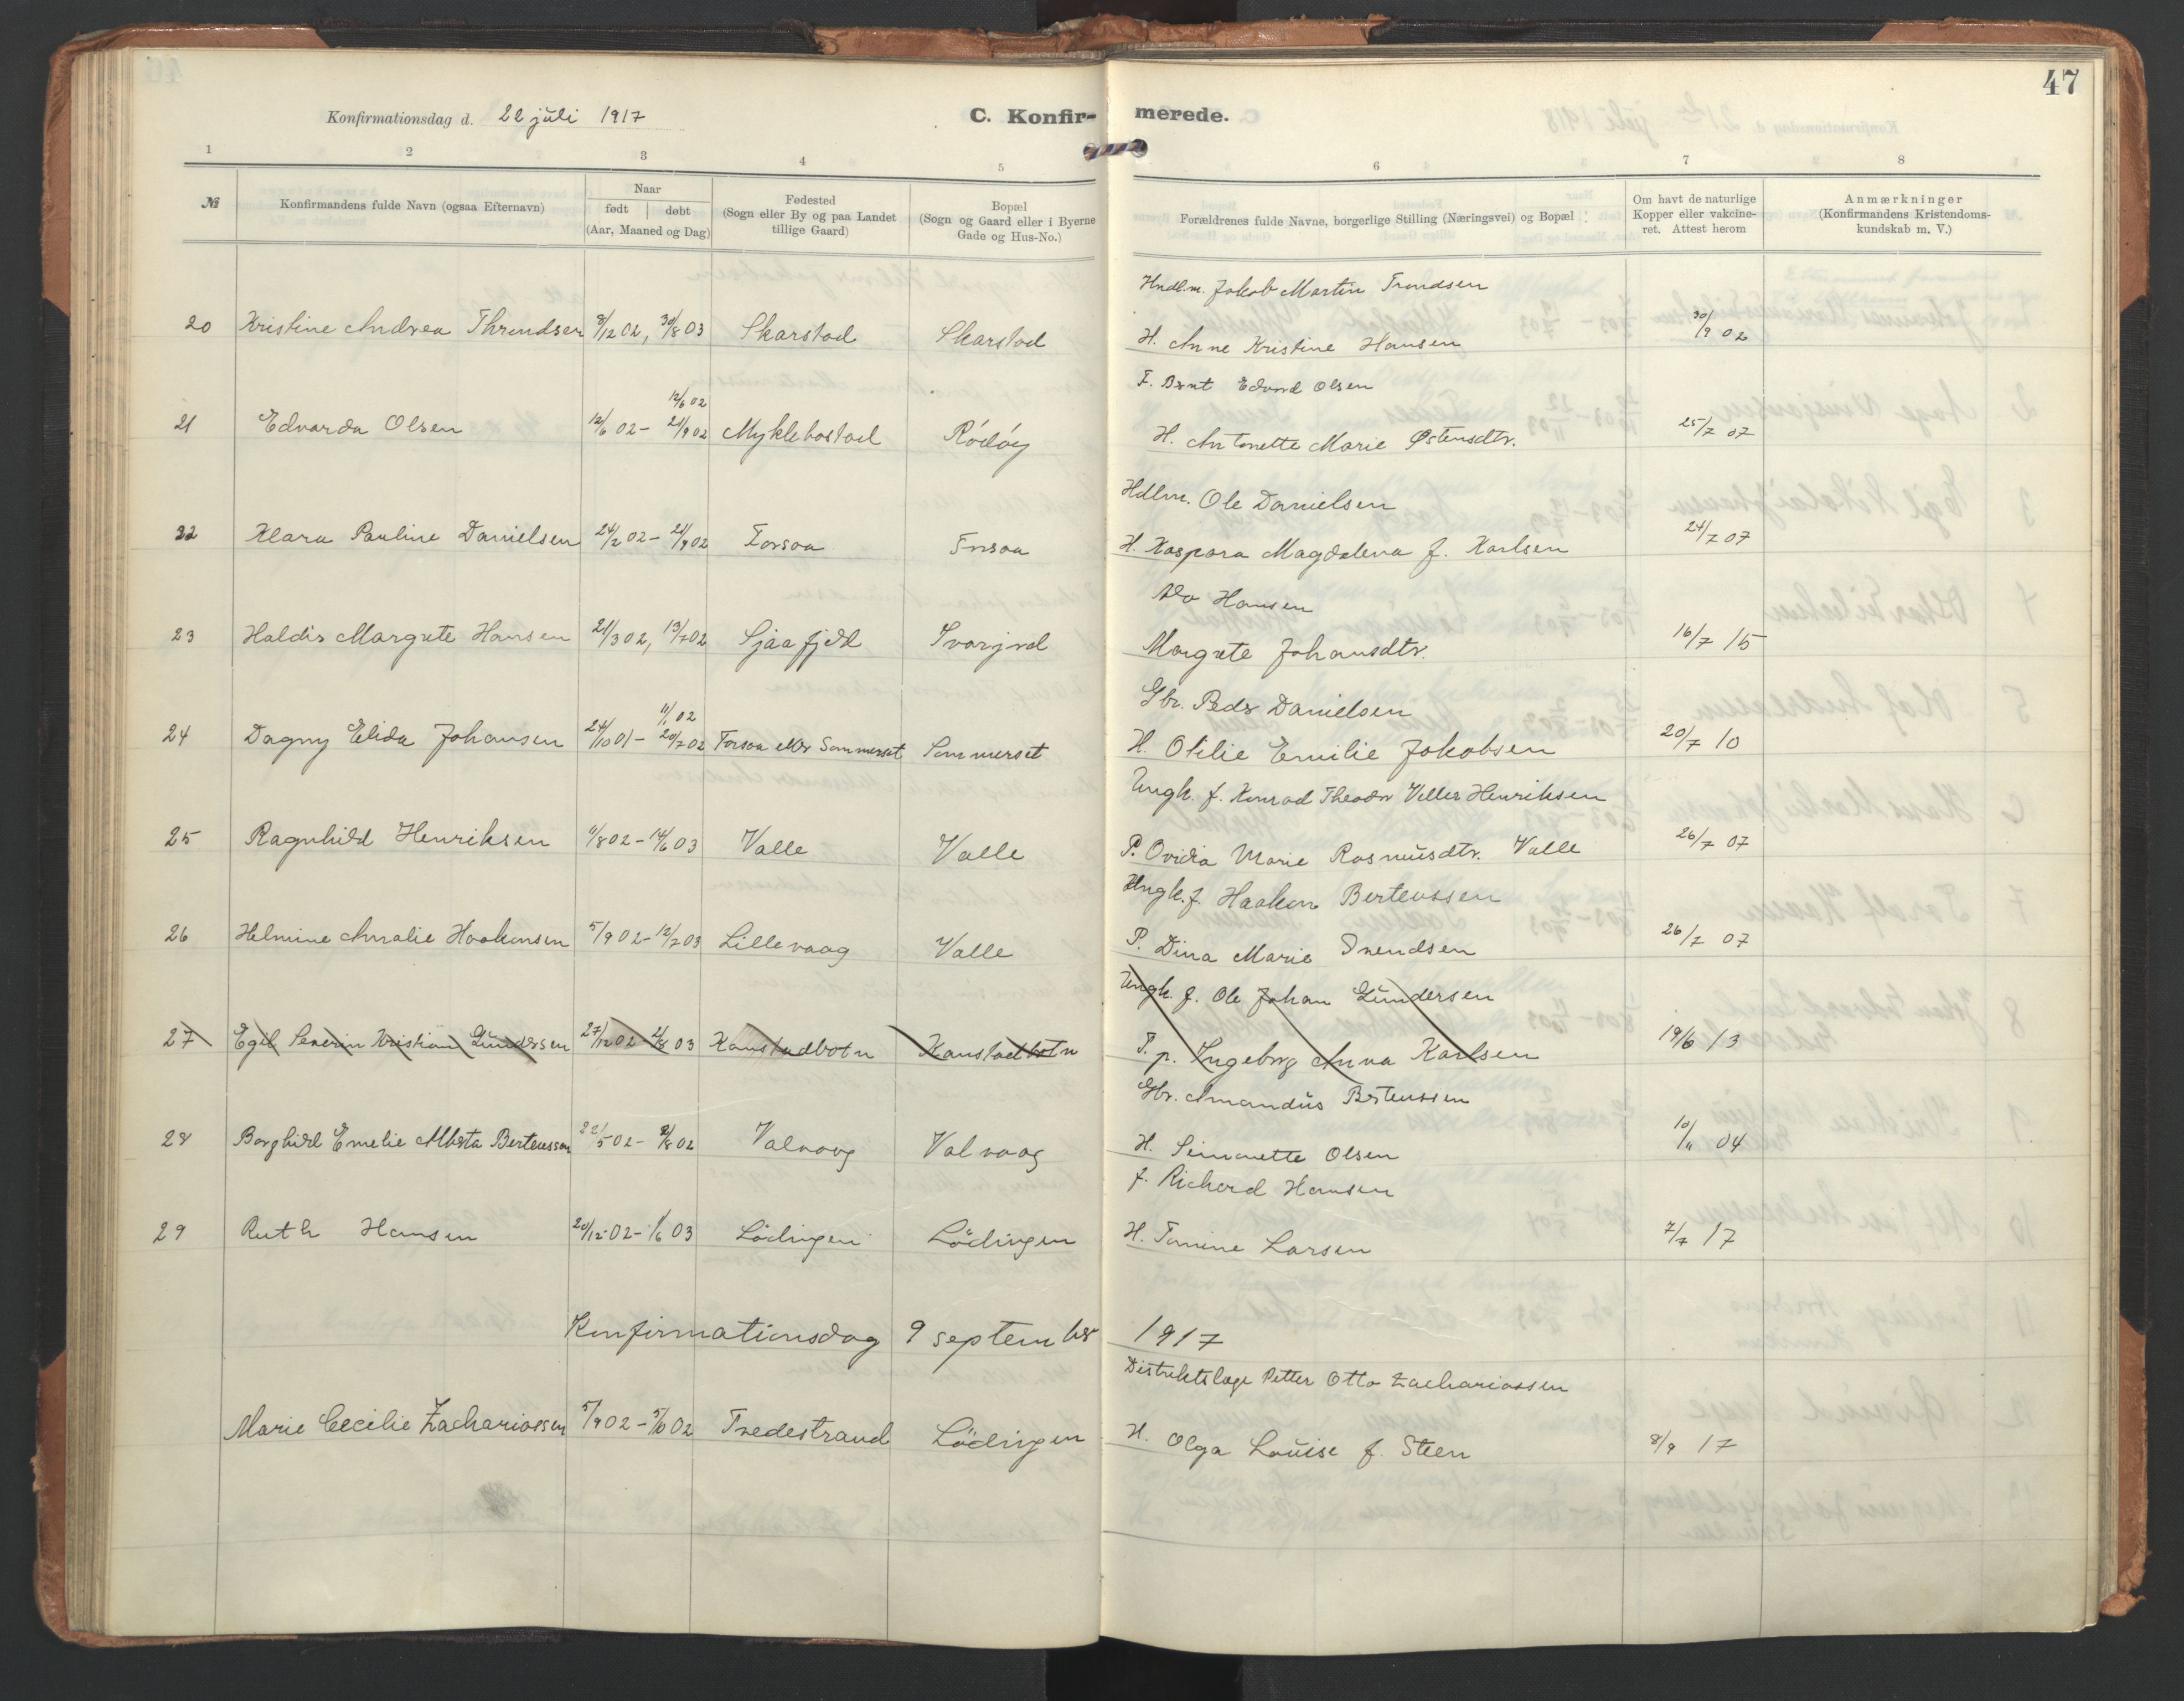 47
Konfirmationsdag d. 22 juli 1917
C. Konfir- merede.
1 2 3 4 5 6 7 8
№ Konfirmandens fulde Navn (ogsaa Efternavn) Naar født døbt (Aar, Maaned og Dag) Fødested (Sogn eller By og paa Landet tillige Gaard) Bopæl (Sogn og Gaard eller i Byerne Gade og Hus-No.) Forældrenes fulde Navne, borgerlige Stilling (Næringsvei) og Bopæl Om havt de naturlige Kopper eller vakcineret. Attest herom Anmærkninger (Konfirmandens Kristendomskundskab m. V.)
Hndlm. Jakob Martin Trondsen
20 Kristine Andrea Throndsen 8/12 02, 30/8 03 Skarstad Skarstad H. Anne Kristine Hansen 30/9 02
12/6 02 F. Bernt Edvard Olsen
21 Edvarda Olsen 12/6 02 - 21/9 02 Myklebostad Rödöy H. Antonette Marie Østensdtr. 25/7 07
Hdlm. Ole Danielsen
22 Klara Pauline Danielsen 24/2 02 - 21/9 02 Forsaa Forsaa H. Kaspara Magdalena f. Karlsen 24/7 07
Alo Hansen
23 Haldis Margrete Hansen 21/3 02, 13/7 02 Sjaafjell Svarjord Margrete Johansdtr. 16/7 15
11/1 02 Gbr. Peder Danielsen
24 Dagny Elida Johansen 24/10 01 - 20/7 02 Forsaa eller Sommerset Sommerset H. Otilie Emilie Jakobsen 20/7 10
Ungk. f. Konrad Theodor Veller Henriksen
25 Ragnhild Henriksen 11/8 02 - 14/6 03 Valle Valle P. Ovidia Marie Rasmusdtr. Valle 26/7 07
Ungk. f. Haakon Berteussen
26 Helmine Amalie Haakonsen 5/9 02 - 12/7 03 Lillevaag Valle P. Dina Marie Svendsen 26/7 07
Ungk. f. Ole Johan Gundersen
27 Egil Severin Kristian Gundersen 27/12 02 - 2/8 03 Kanstadbotn Kanstadbotn T. p. Ingeborg Anna Karlsen 19/6 13
Gbr. Amandus Berteussen
28 Borghild Emelie Alberta Berteussen 22/5 02 - 2/8 02 Valvaag Valvaag H. Simonette Olsen 10/11 04
f. Richard Hansen
29 Ruth Hansen 20/12 02 - 1/6 03 Lödingen Lödingen H. Tomine Larsen 7/7 17
Konfirmationsdag 9 september 1917
Distriktslæge Petter Otto Zachariassen
Marie Cecilie Zachariassen 5/9 02 - 5/10 02 Tvedestrand Lödingen H. Olga Louise f. Steen 8/9 17